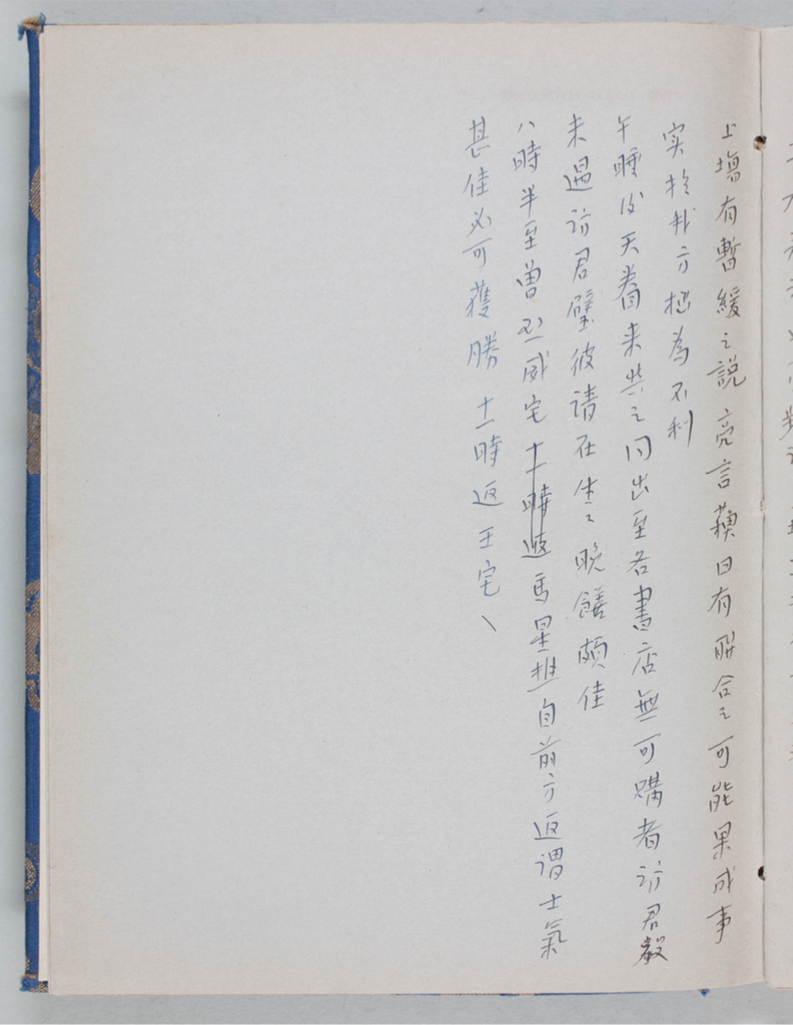 上有暫緩之說亮言蘓日有聯合之可能果成事
实於我方極為不利
午睡後天眷来共之同出至各書店無可購者訪君穀
未遇訪君璧彼請在生々晚饍頗佳
八時半至曾威宅十一時返馬星樵自前方返謂士氣
甚佳必可獲勝 十一時返王宅